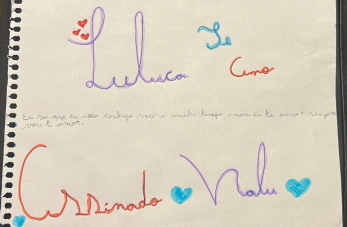 Luluca Te
Amo
Eu sei que eu não conheço você a muito tempo mou eu te amo
vou te amor.
Assinado Nalu